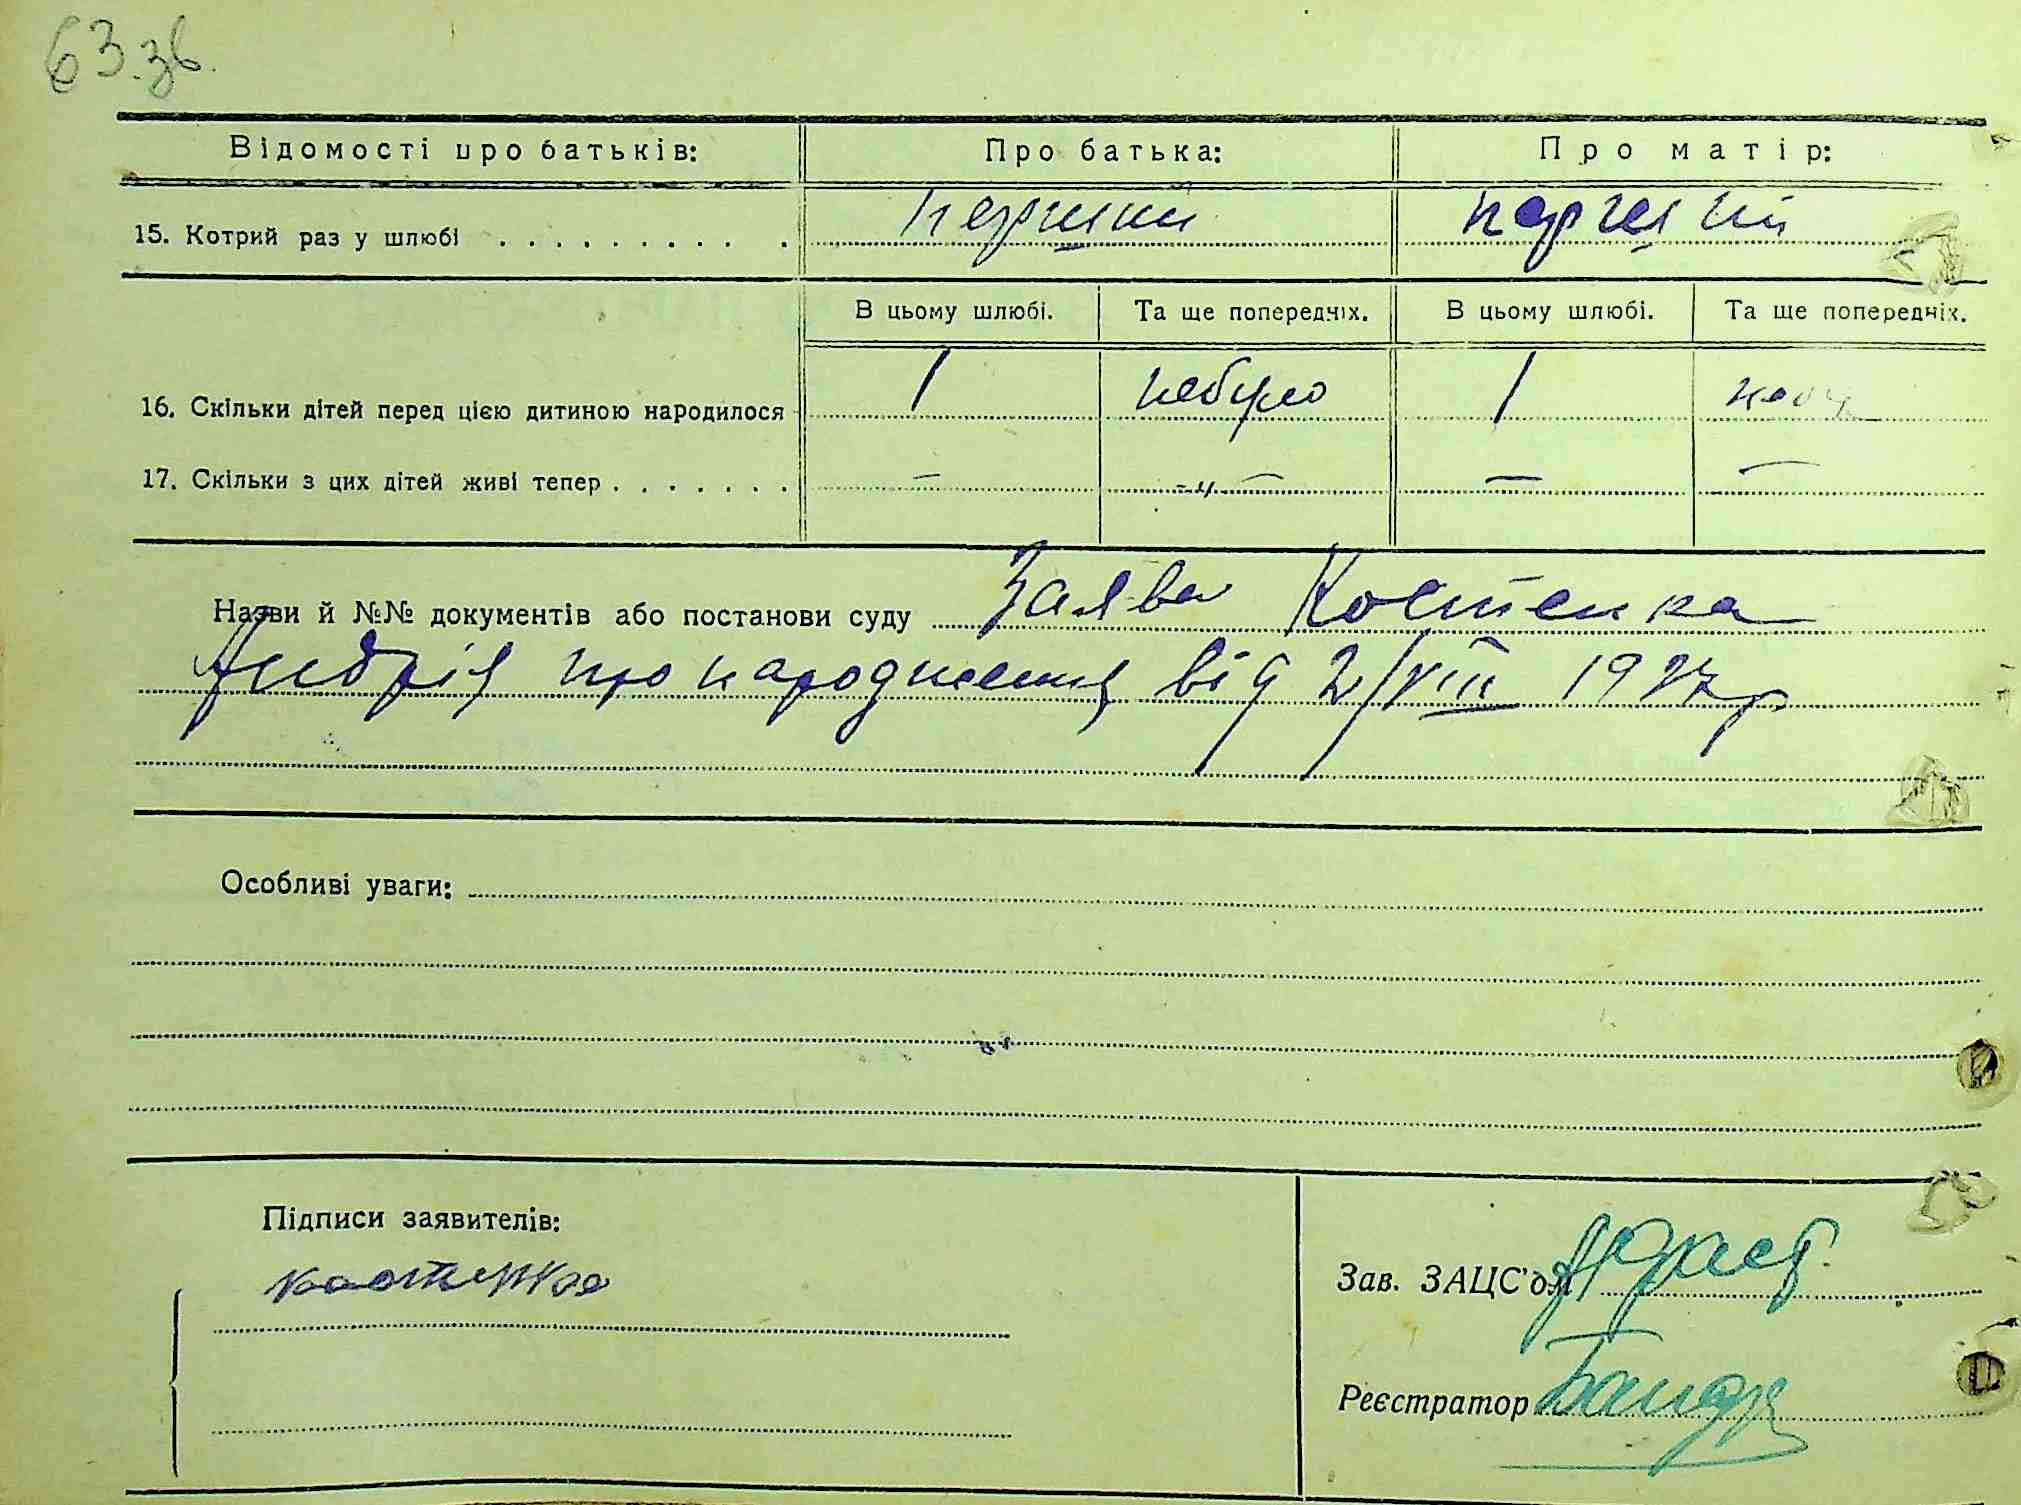 63.зв.
Відомості про батьків: Про батька: Про матір:
15. Котрий раз у шлюбі . . . . . . . . . . . перший перший
В цьому шлюбі. Та ще попередніх. В цьому шлюбі. Та ще попередніх.
16. Скільки дітей перед цією дитиною народилося 1 небуло 1
17. Скільки з цих дітей живі тепер . . . . . . . — -"- — —
Назви й №№ документів або постанови суду Заява Костенка
Андрія про народження від 2/VIII 1927 р
Особливі уваги:
Підписи заявителів:
костенко
Зав. ЗАЦС'ом
Реєстратор